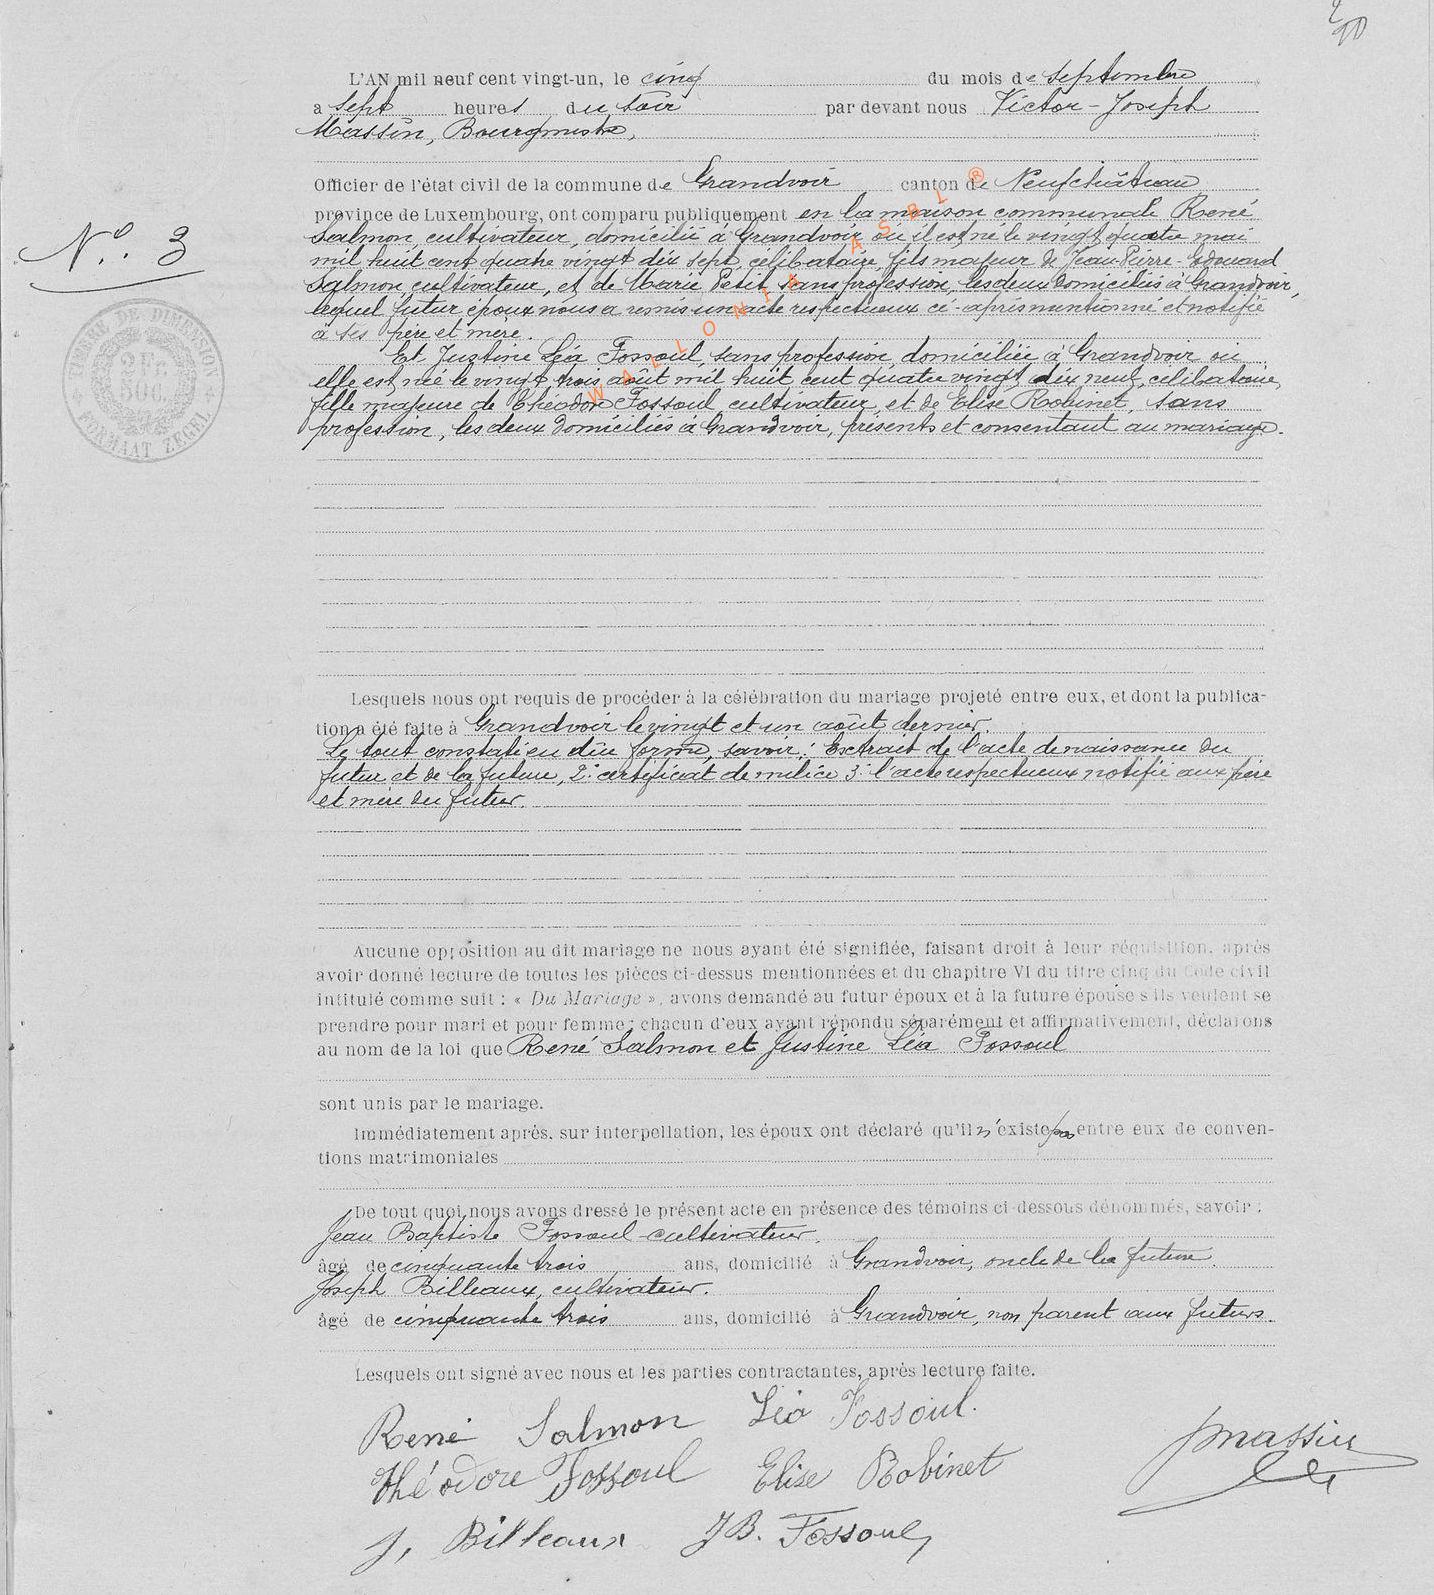 90
L'AN mil neuf cent vingt-un, le cinq du mois de septembre
a sept heures du soir par devant nous Victor-Joseph
Massin, Bourgmestre,
Officier de l'état civil de la commune de Grandvoir canton de Neufchâteau
province de Luxembourg, ont comparu publiquement en la maison communale René
N° 3
Salmon, cultivateur, domicilié à Grandvoir où il est né le vingt quatre mai
mil huit cent quatre vingt dix sept, célibataire, fils majeur de Jean-Pierre-Edouard
Salmon, cultivateur, et de Marie Petit, sans profession, les deux domiciliés à Grandvoir,
lequel futur époux nous a remis un acte respectueux ci-après mentionné et notifié
à ses père et mère.
Et Justine Léa Fossoul, sans profession, domiciliée à Grandvoir où
elle est née le vingt trois août mil huit cent quatre vingt dix neuf, célibataire,
fille majeure de Théodore Fossoul, cultivateur, et de Elise Robinet, sans
profession, les deux domiciliés à Grandvoir, présents et consentant au mariage.
WALLONIA ASBL ®
TIMBRE DE DIMENSION
2 Fr. 50 C.
FORMAAT ZEGEL
Lesquels nous ont requis de procéder à la célébration du mariage projeté entre eux, et dont la publica-
tion a été faite à Grandvoir le vingt et un août dernier.
Le tout constaté en due forme, savoir: Extrait de l'acte de naissance du
futur et de la future, 2° certificat de milice 3° l'acte respectueux notifié aux père
et mère du futur.
Aucune opposition au dit mariage ne nous ayant été signifiée, faisant droit à leur réquisition, après
avoir donné lecture de toutes les pièces ci-dessus mentionnées et du chapitre VI du titre cinq du Code civil
intitulé comme suit : « Du Mariage », avons demandé au futur époux et à la future épouse s'ils veulent se
prendre pour mari et pour femme; chacun d'eux ayant répondu séparément et affirmativement, déclarons
au nom de la loi que René Salmon et Justine Léa Fossoul
sont unis par le mariage.
Immédiatement après, sur interpellation, les époux ont déclaré qu'il n'existe pas entre eux de conven-
tions matrimoniales
De tout quoi nous avons dressé le présent acte en présence des témoins ci-dessous dénommés, savoir :
Jean Baptiste Fossoul cultivateur.
âgé de cinquante trois ans, domicilié à Grandvoir, oncle de la future.
Joseph Billeaux, cultivateur.
âgé de cinquante trois ans, domicilié à Grandvoir, non parent aux futurs.
Lesquels ont signé avec nous et les parties contractantes, après lecture faite.
René Salmon Léa Fossoul.
Théodore Fossoul Elise Robinet Massin
J. Billeaux JB. Fossoul